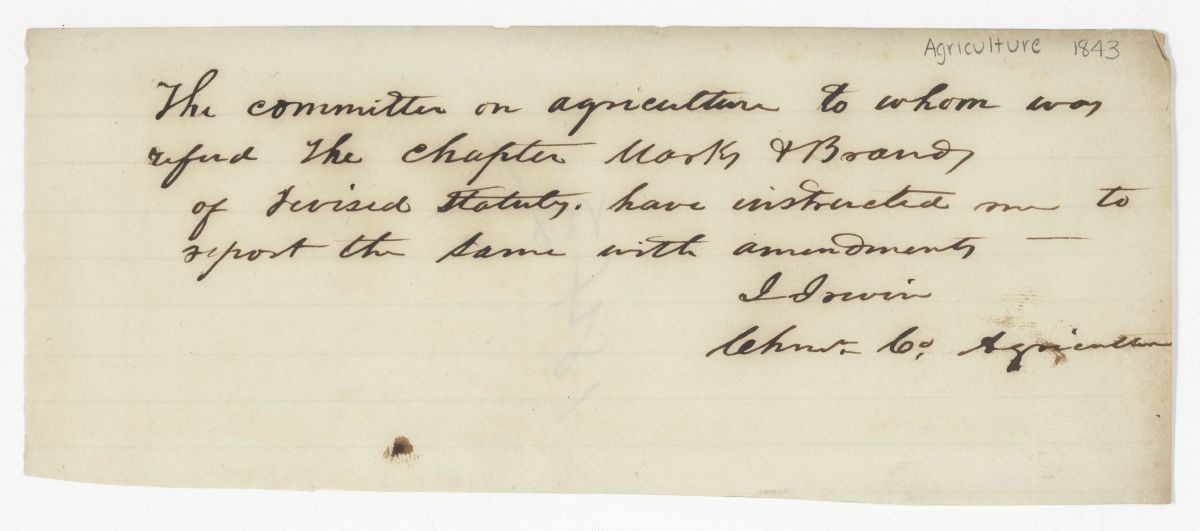 Agriculture 1843
The committee on agriculture to whom was
referd the chapter Marks & Brands
of revised Statutes. have instructed me to
report the same with amendments —
J Irwin
Chmn Co. Agriculture